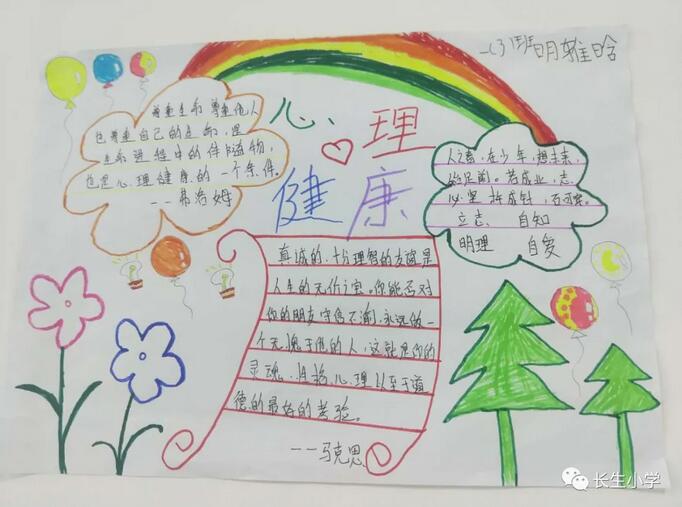 一(3)班明雅晗
心理
健康
尊重生命 尊重他人
也尊重自己的生命,是
生命进程中的伴随物,
也是心理健康的一个条件。
——弗洛姆
人之者,在少年,想未来,
始足前。若成业,志
必坚
立志 自知
明理 自爱
真诚的、十分理智的友谊是
人生的无价之宝。你能否对
你的朋友守信不渝,永远做一
个无愧于他的人,这就是你的
灵魂、性格、心理以至于道
德的最好的考验。
——马克思
长生小学